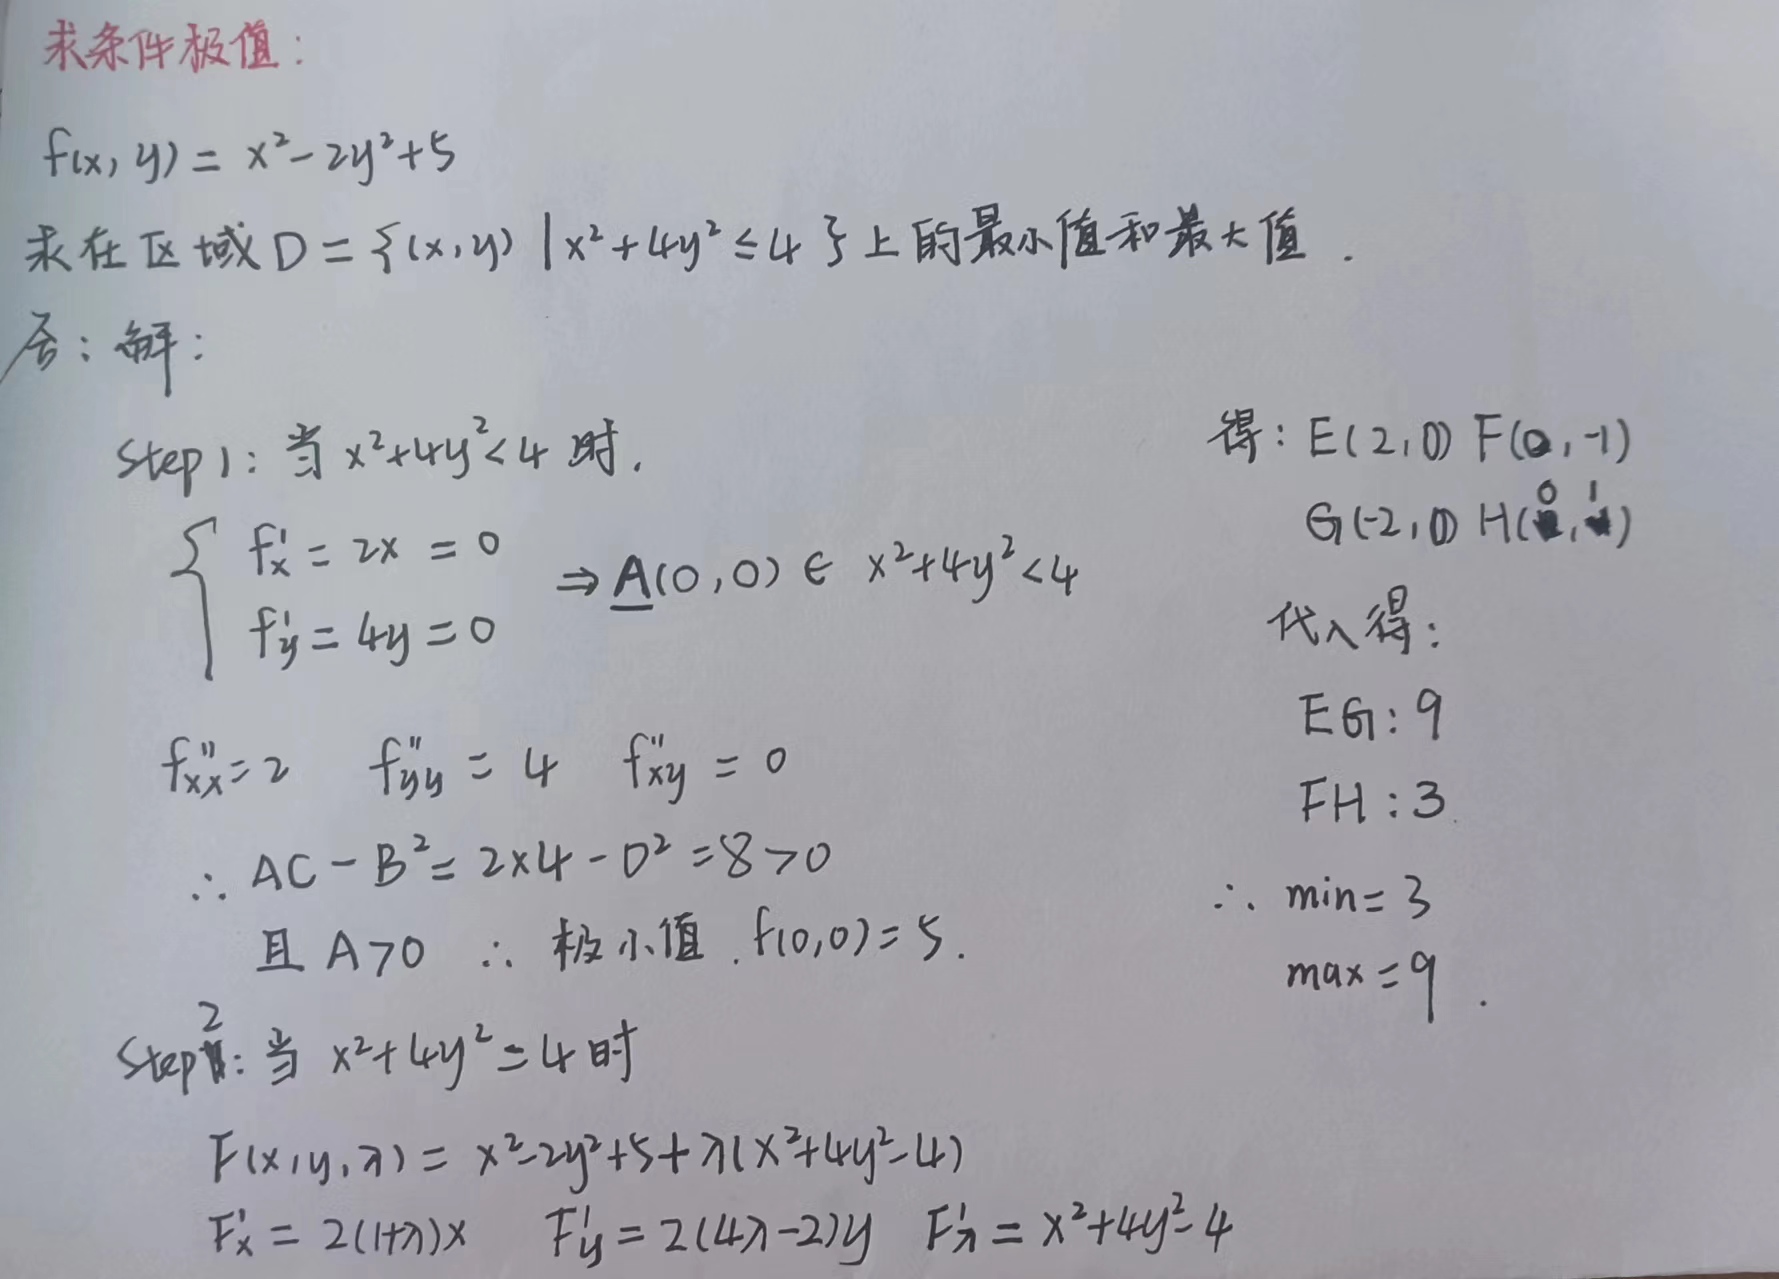 求条件极值:
f(x, y) = x²-2y²+5
求在区域D={(x,y) | x²+4y²≤4}上的最小值和最大值.
答:解:
Step1:当x²+4y²<4时.
{ f'x = 2x = 0
f'y = 4y = 0
⇒ A(0,0) ∈ x²+4y²<4
f''xx = 2 f''yy = 4 f''xy = 0
∴ AC-B² = 2×4-0² = 8>0
且A>0 ∴ 极小值.f(0,0)=5.
Step2:当x²+4y²=4时
F(x,y,λ) = x²-2y²+5+λ(x²+4y²-4)
F'x = 2(1+λ)x F'y = 2(4λ-2)y F'λ = x²+4y²-4
得:E(2,0) F(0,-1)
G(-2,0) H(0,1)
代入得:
EG:9
FH:3
∴ min=3
max=9.